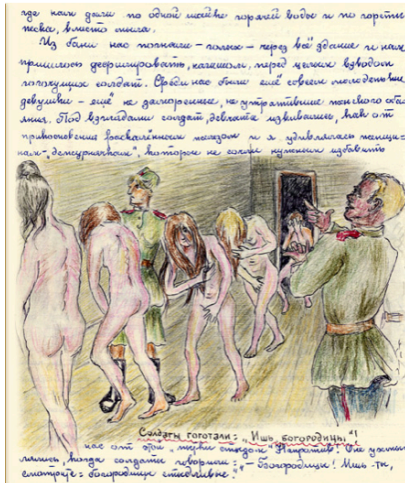 где нам дали по одной шайке горячей воды и по горсти
тока, вместо мыла.
Из бани нас погнали – голых – через всё здание и нам
пришлось дефилировать, нагишом, перед целым взводом
гогочущих солдат. Среди нас были ещё совсем молоденькие
девушки – ещё не заморенные, не утратившие женского обая-
ния. Под взглядами солдат, девчата извивались, как от
прикосновения раскалённым железом и я удивлялась женщи-
нам-"дежурнячкам", которые не сочли нужным избавить
Солдаты гоготали: "Ишь, богородицы"!
нас от этой пытки стыдом. Напротив! Они
лились, когда солдаты говорили: – Богородицы! Ишь ты,
смотрите: богородицы стыдливые."